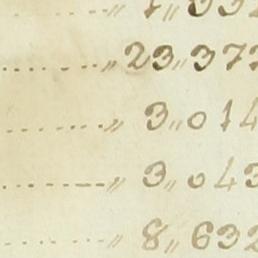 ........〃 7〃 332
........〃 23〃 372
........〃 3〃 014
........〃 3〃 043
........〃 8〃 632